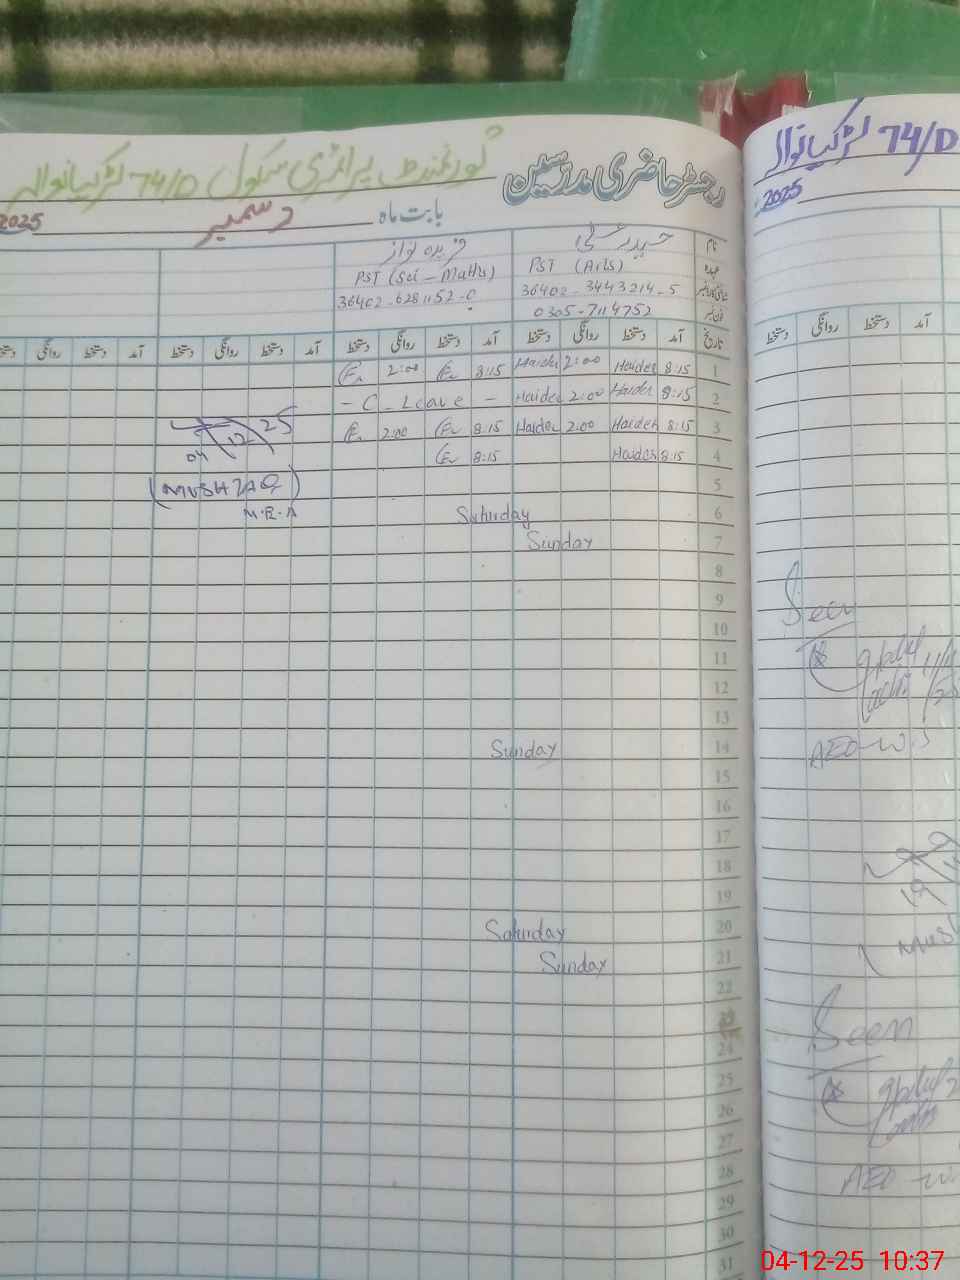 گورنمنٹ پرائمری سکول 74/D لڑکیانوالہ
رجسٹر حاضری مدرسین
بابت ماہ دسمبر 2025
نام حیدر علی
عہدہ PST (Arts) PST (Sci - Maths)
36402-3443214-5 36402-6281152-0
0305-7114752
تاریخ آمد دستخط روانگی دستخط آمد دستخط روانگی دستخط آمد دستخط روانگی دستخط آمد دستخط روانگی دستخط
1 8:15 Haider 2:00 Haider 8:15 2:00
2 8:15 Haider 2:00 Haider - C - Leave -
3 8:15 Haider 2:00 Haider 8:15 2:00
4 8:15 Haider 8:15
04/12/25
(MUSHTAQ)
M.E.A
5
6 Saturday
7 Sunday
8
9
10
11
12
13
14 Sunday
15
16
17
18
19
20 Saturday
21 Sunday
22
23
24
25
26
27
28
29
30
31
لڑکیانوالہ 74/D
2025
آمد دستخط روانگی دستخط
Seen
AEO-W
19
Seen
AEO
04-12-25 10:37